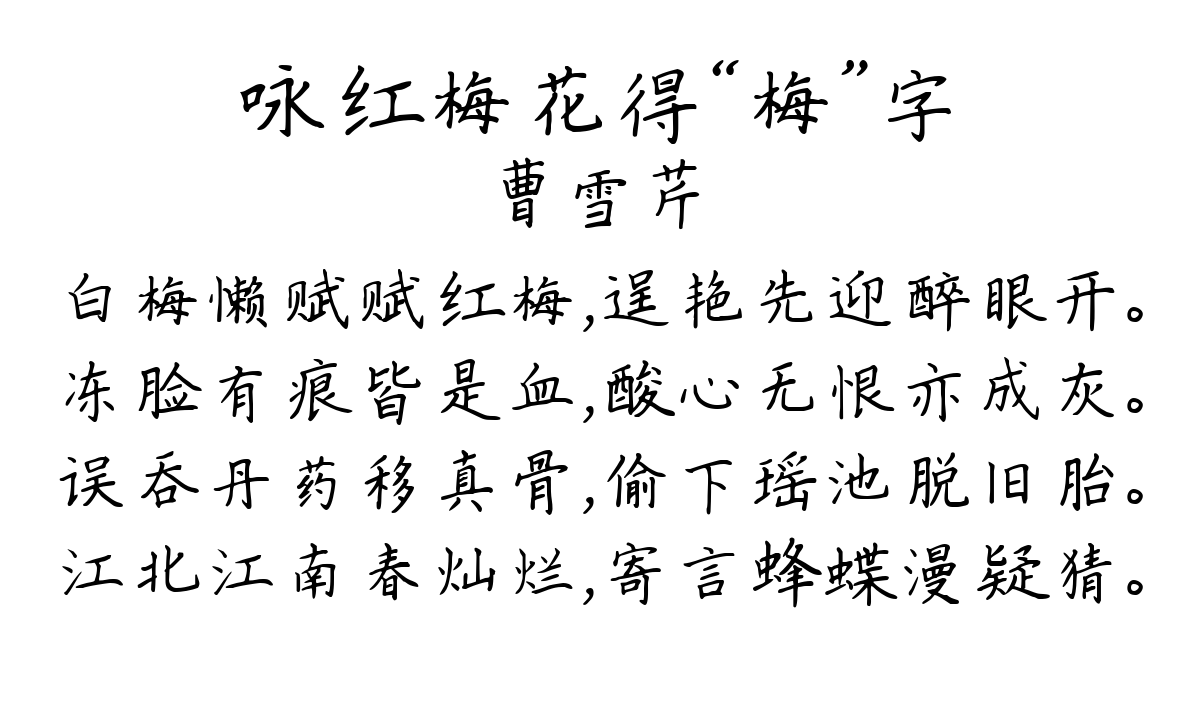 咏红梅花得“梅”字
曹雪芹
白梅懒赋赋红梅,逞艳先迎醉眼开。
冻脸有痕皆是血,酸心无恨亦成灰。
误吞丹药移真骨,偷下瑶池脱旧胎。
江北江南春灿烂,寄言蜂蝶漫疑猜。